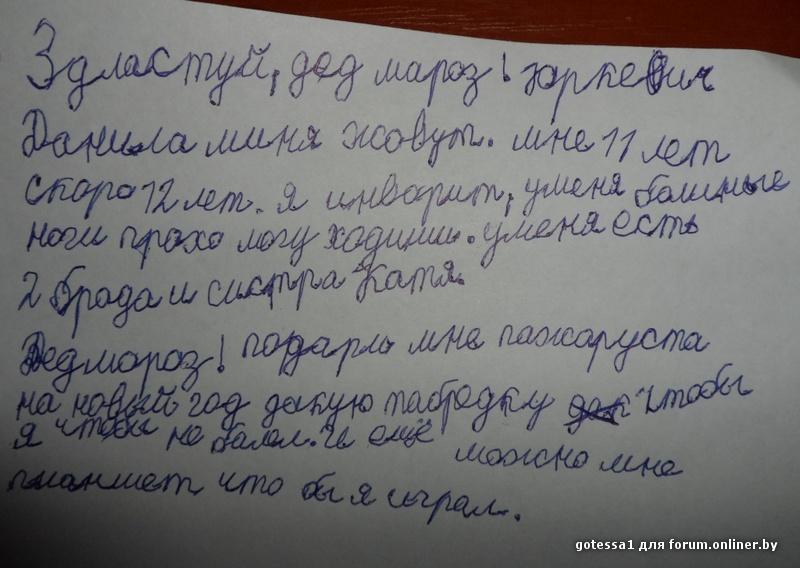 Здластуй, дед мароз! юркевич
Данила миня жовут. мне 11 лет
скоро 12 лет. я инварит, уменя болиные
ноги прохо могу ходиши. уменя есть
2 брада и систра Катя.
Дедмороз! подарль мне пажаруста
на новый год дакую таблодку чтобы
я чтобы не балел. и ещё можно мне
планшет что бы я играл.
gotessa1 для forum.onliner.by